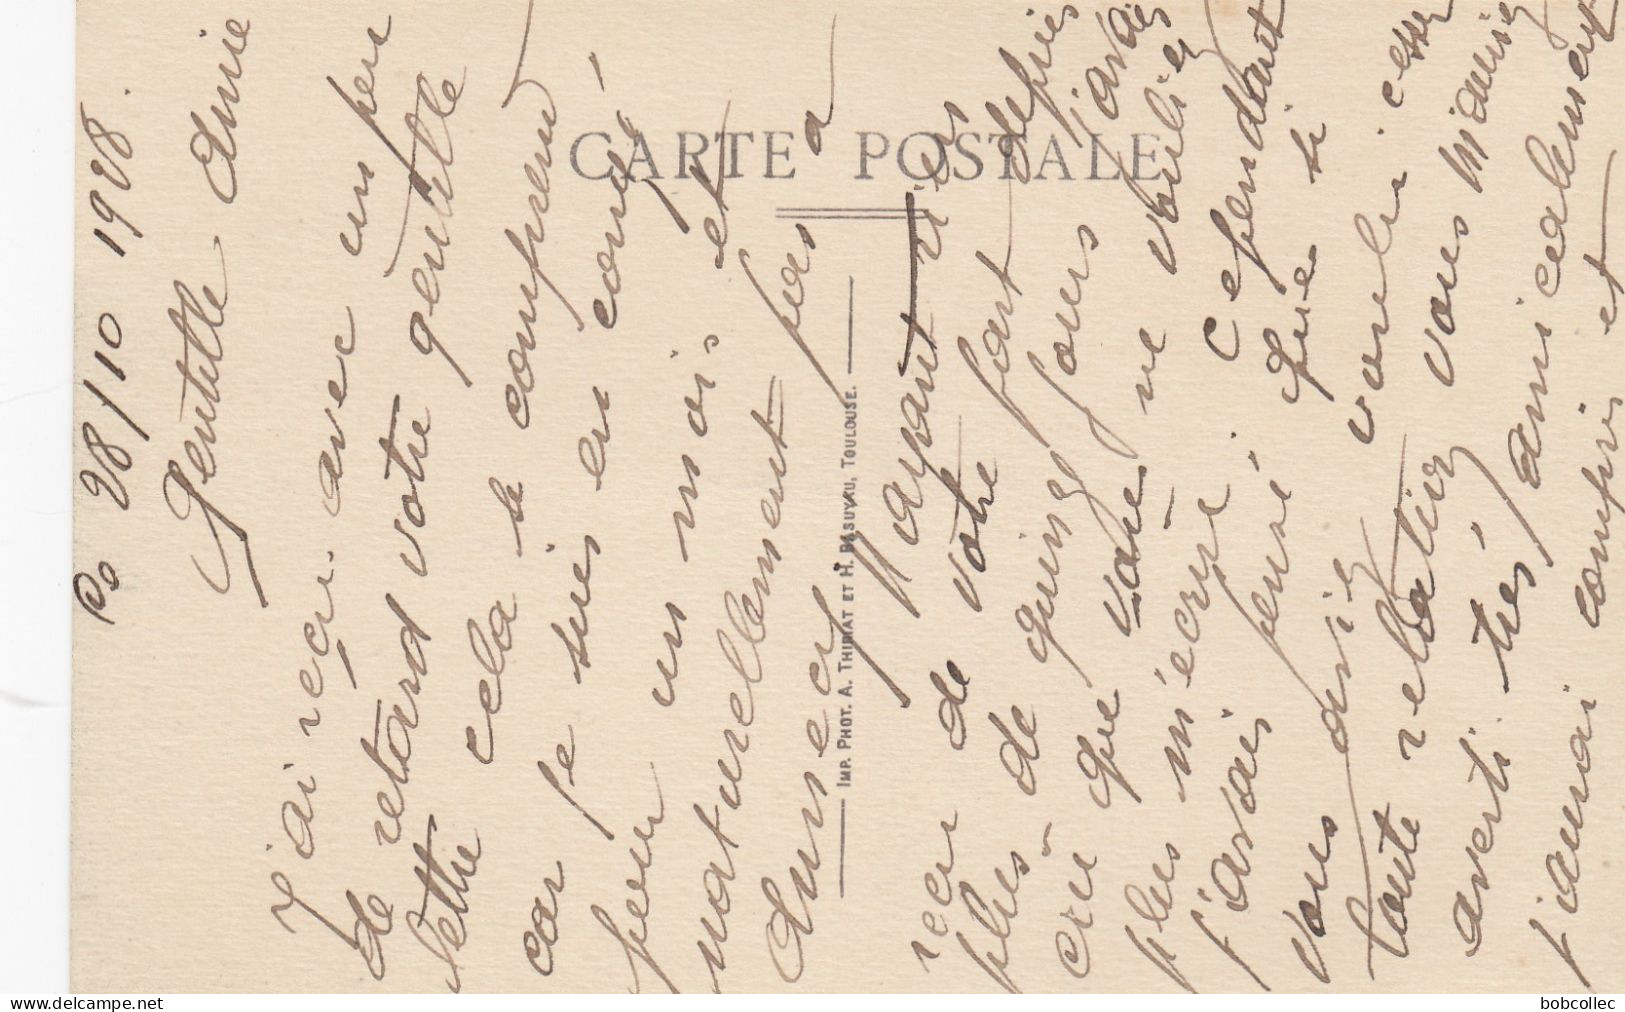 CARTE POSTALE
IMP. PHOT. A. THIRIAT ET H. BASUYAU, TOULOUSE.
28/10 1928.
Gentille Amie
J'ai reçu avec un peu
de retard votre gentille
lettre cela se comprend
car je suis en congé
pour un mois et
naturellement pas a
N'ayant rien
reçu de votre part depuis
plus de quinze jours j'avais
cru que vous ne vouliez
plus m'écrire. Cependant
j'avais pensé que si
vous aviez voulu cesser
toute relation vous m'auriez
averti très amicalement
j'aurai compris et
bobcollec